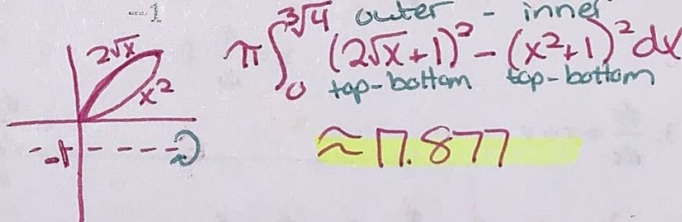 -- 1
outer - inner
π∫₀^∛4 (2√x+1)² - (x²+1)² dx
top-bottom top-bottom
2√x
x²
-1
≈17.877